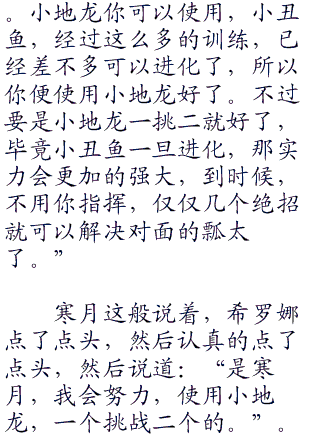 。小地龙你可以使用，小丑
鱼，经过这么多的训练，已
经差不多可以进化了，所以
你便使用小地龙好了。不过
要是小地龙一挑二就好了，
毕竟小丑鱼一旦进化，那实
力会更加的强大，到时候，
不用你指挥，仅仅几个绝招
就可以解决对面的瓢太
了。”
寒月这般说着，希罗娜
点了点头，然后认真的点了
点头，然后说道：“是寒
月，我会努力，使用小地
龙，一个挑战二个的。”。